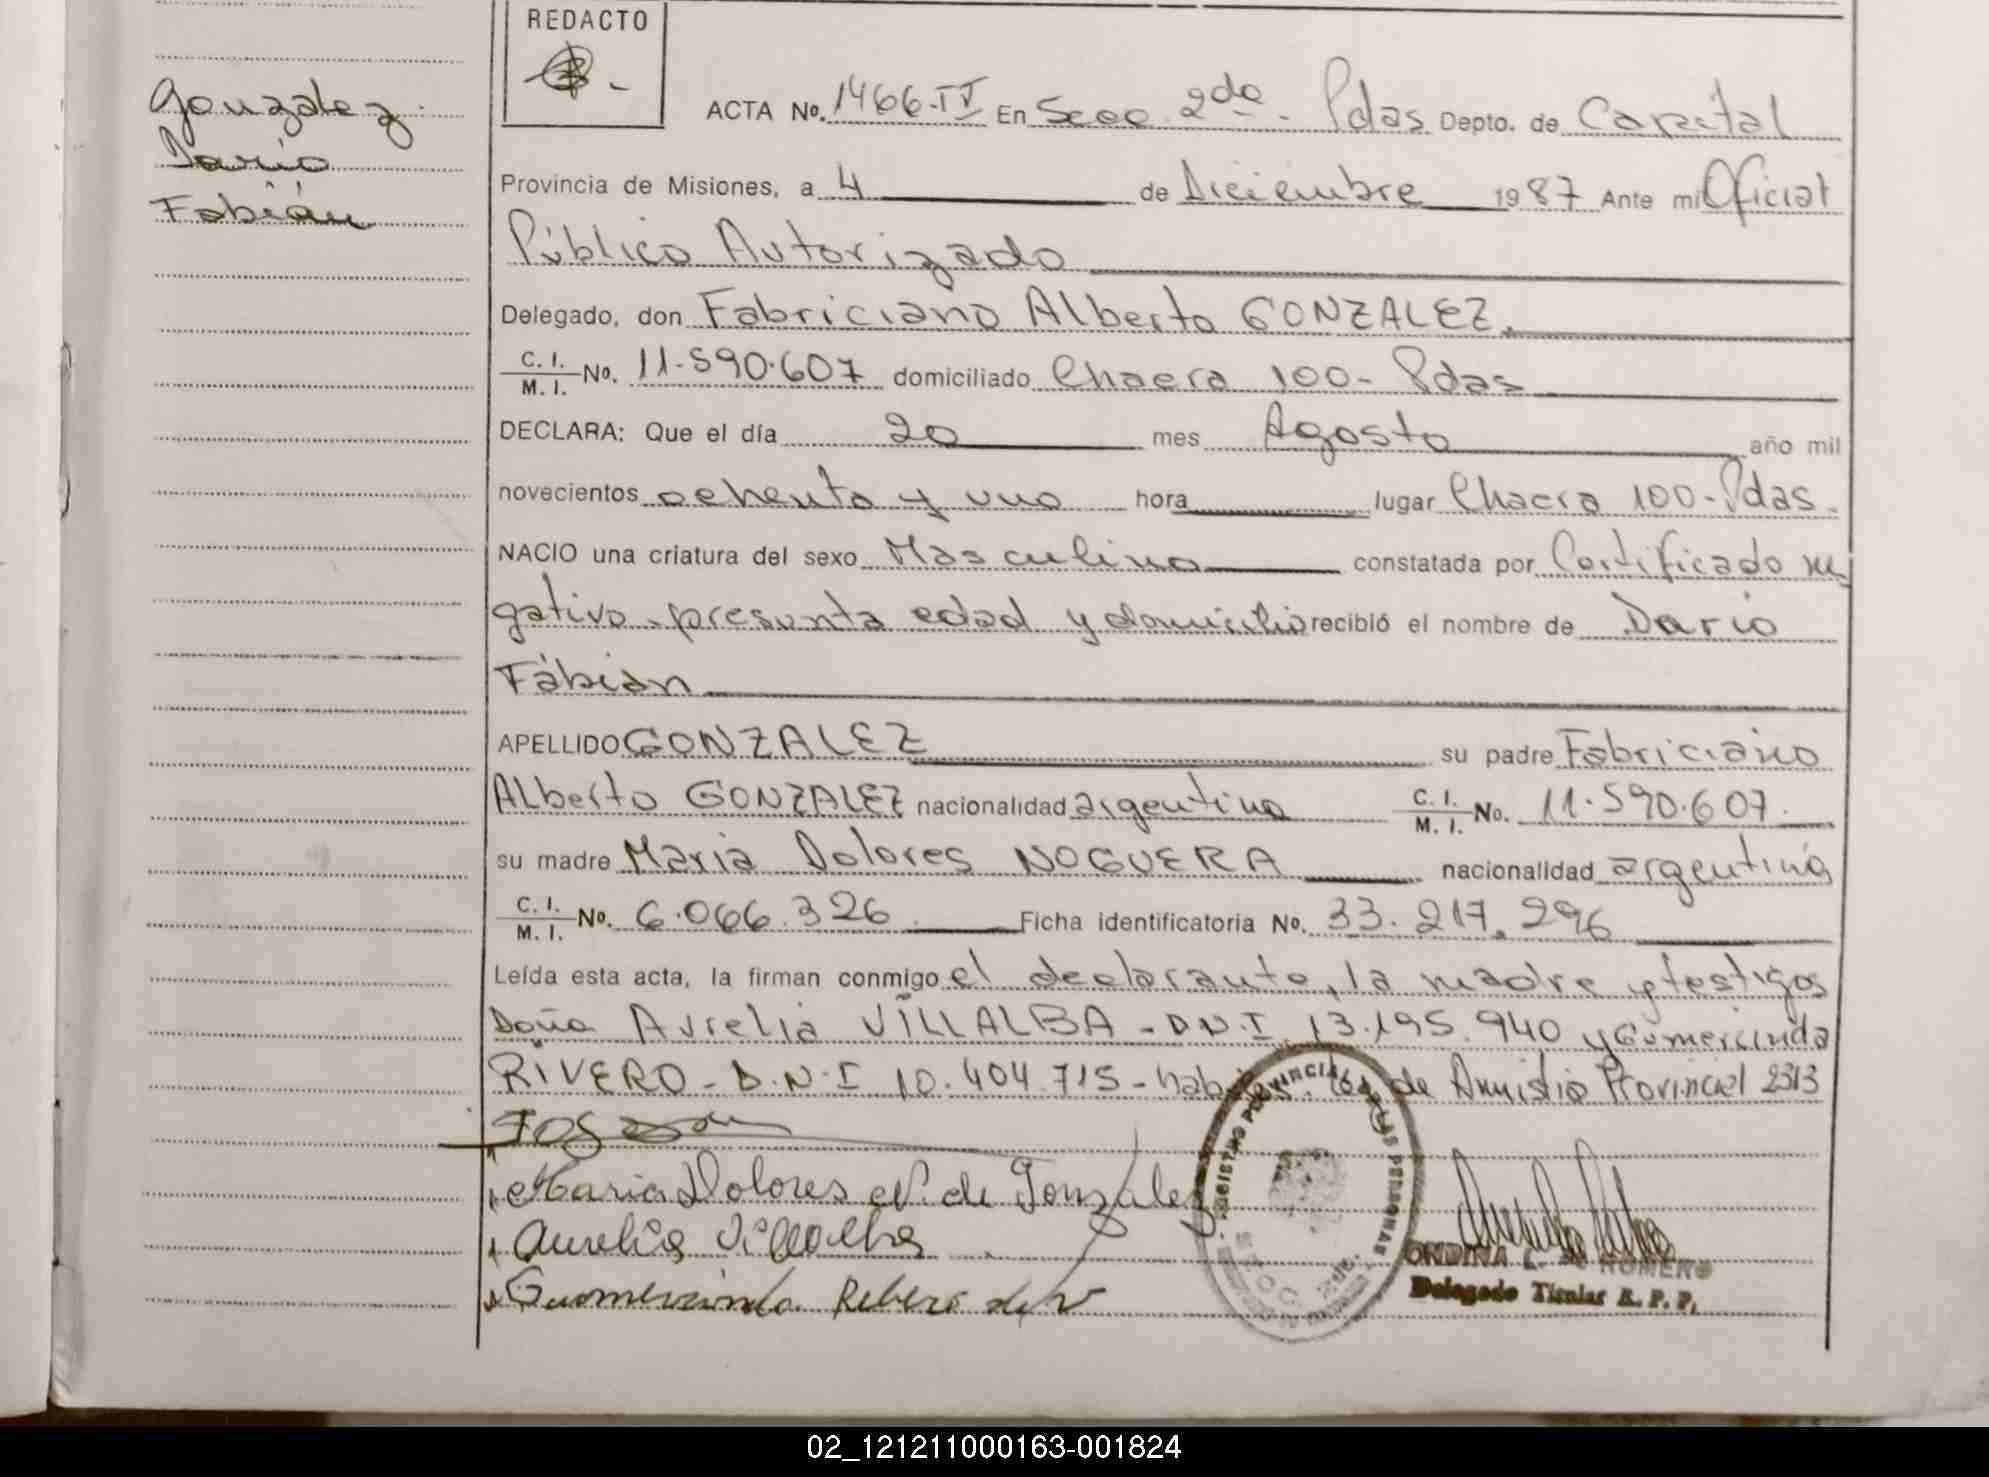 REDACTO
Gonzalez
Dario
Fabián
ACTA No. 1466-IV En Secc. 2da - Pdas Depto. de Capital
Provincia de Misiones, a 4 de Diciembre 1987 Ante mi Oficial
Público Autorizado
Delegado, don Fabriciano Alberto GONZALEZ.
C. I. / M. I. No. 11.590.607 domiciliado Chacra 100- Pdas
DECLARA: Que el día 20 mes Agosto año mil
novecientos ochenta y uno hora lugar Chacra 100-Pdas.
NACIO una criatura del sexo Masculino constatada por Certificado ne
gativo, presunta edad y domicilio recibló el nombre de Dario
Fabián
APELLIDO GONZALEZ su padre Fabriciano
Alberto GONZALEZ nacionalidad argentina C. I. / M. I. No. 11.590.607.
su madre Maria Dolores NOGUERA nacionalidad argentina
C. I. / M. I. No. 6.066.326 Ficha identificatoria No. 33.217.296
Leída esta acta, la firman conmigo el declarante, la madre y testigos
Doña Aurelia VILLALBA - D.N.I 13.195.940 y Gumercinda
RIVERO - D.N.I 10.404.715 - de Amnistia Provincial 2313
Maria Dolores N. de Gonzalez
Aurelia Villalba
Gumercinda Ribero de V
REGISTRO PROVINCIAL DE LAS PERSONAS
SECC. 2da.
ONDINA L. DE ROMERO
Delegado Titular R. P. P.
02_121211000163-001824